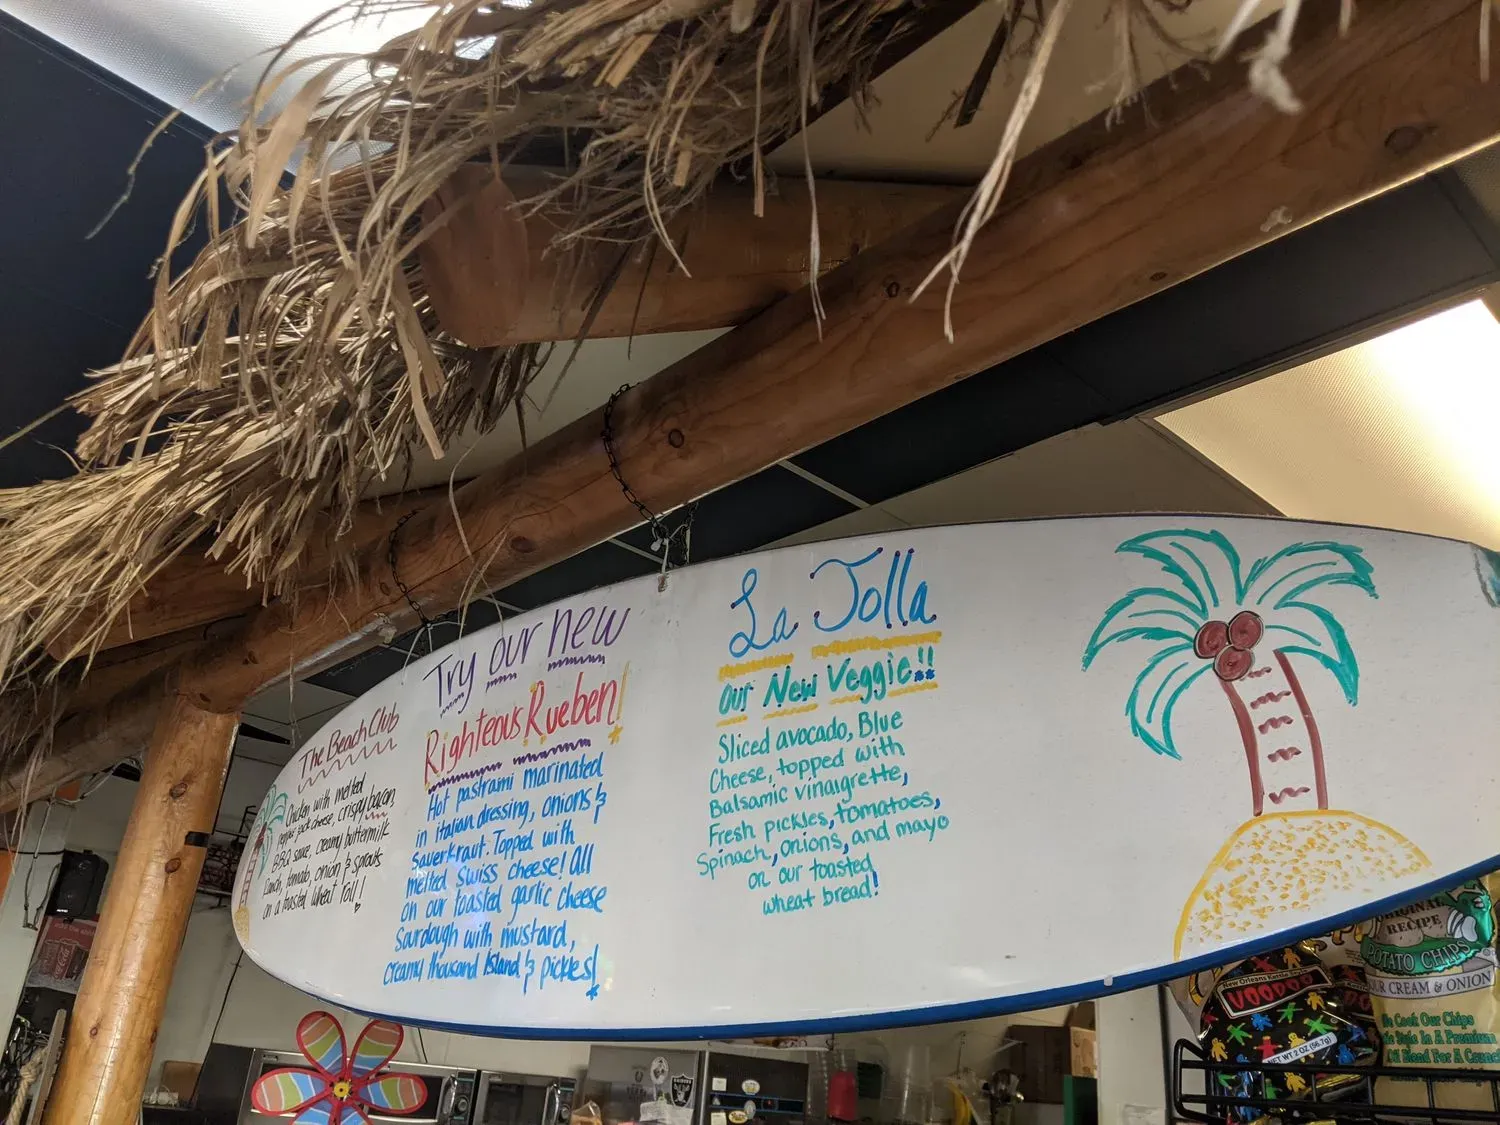 The Beach Club
Chicken with melted
pepper jack cheese, crispy bacon,
BBQ sauce, creamy buttermilk
Ranch, tomato, onion & sprouts
on a toasted wheat roll!
Try our new
Righteous Rueben!
Hot pastrami marinated
in italian dressing, onions &
Sauerkraut. Topped with
melted swiss cheese! All
on our toasted garlic cheese
Sourdough with mustard,
creamy thousand island & pickles!
La Jolla
Our New Veggie!!
Sliced avocado, Blue
Cheese, topped with
Balsamic vinaigrette,
Fresh pickles, tomatoes,
Spinach, onions, and mayo
on our toasted
wheat bread!
New Orleans Kettle Style
VOODOO
NET WT 2 OZ (56.7g)
ORIGINAL
RECIPE
POTATO CHIPS
SOUR CREAM & ONION
We Cook Our Chips
In A Premium
Oil Blend For A
RAIDERS